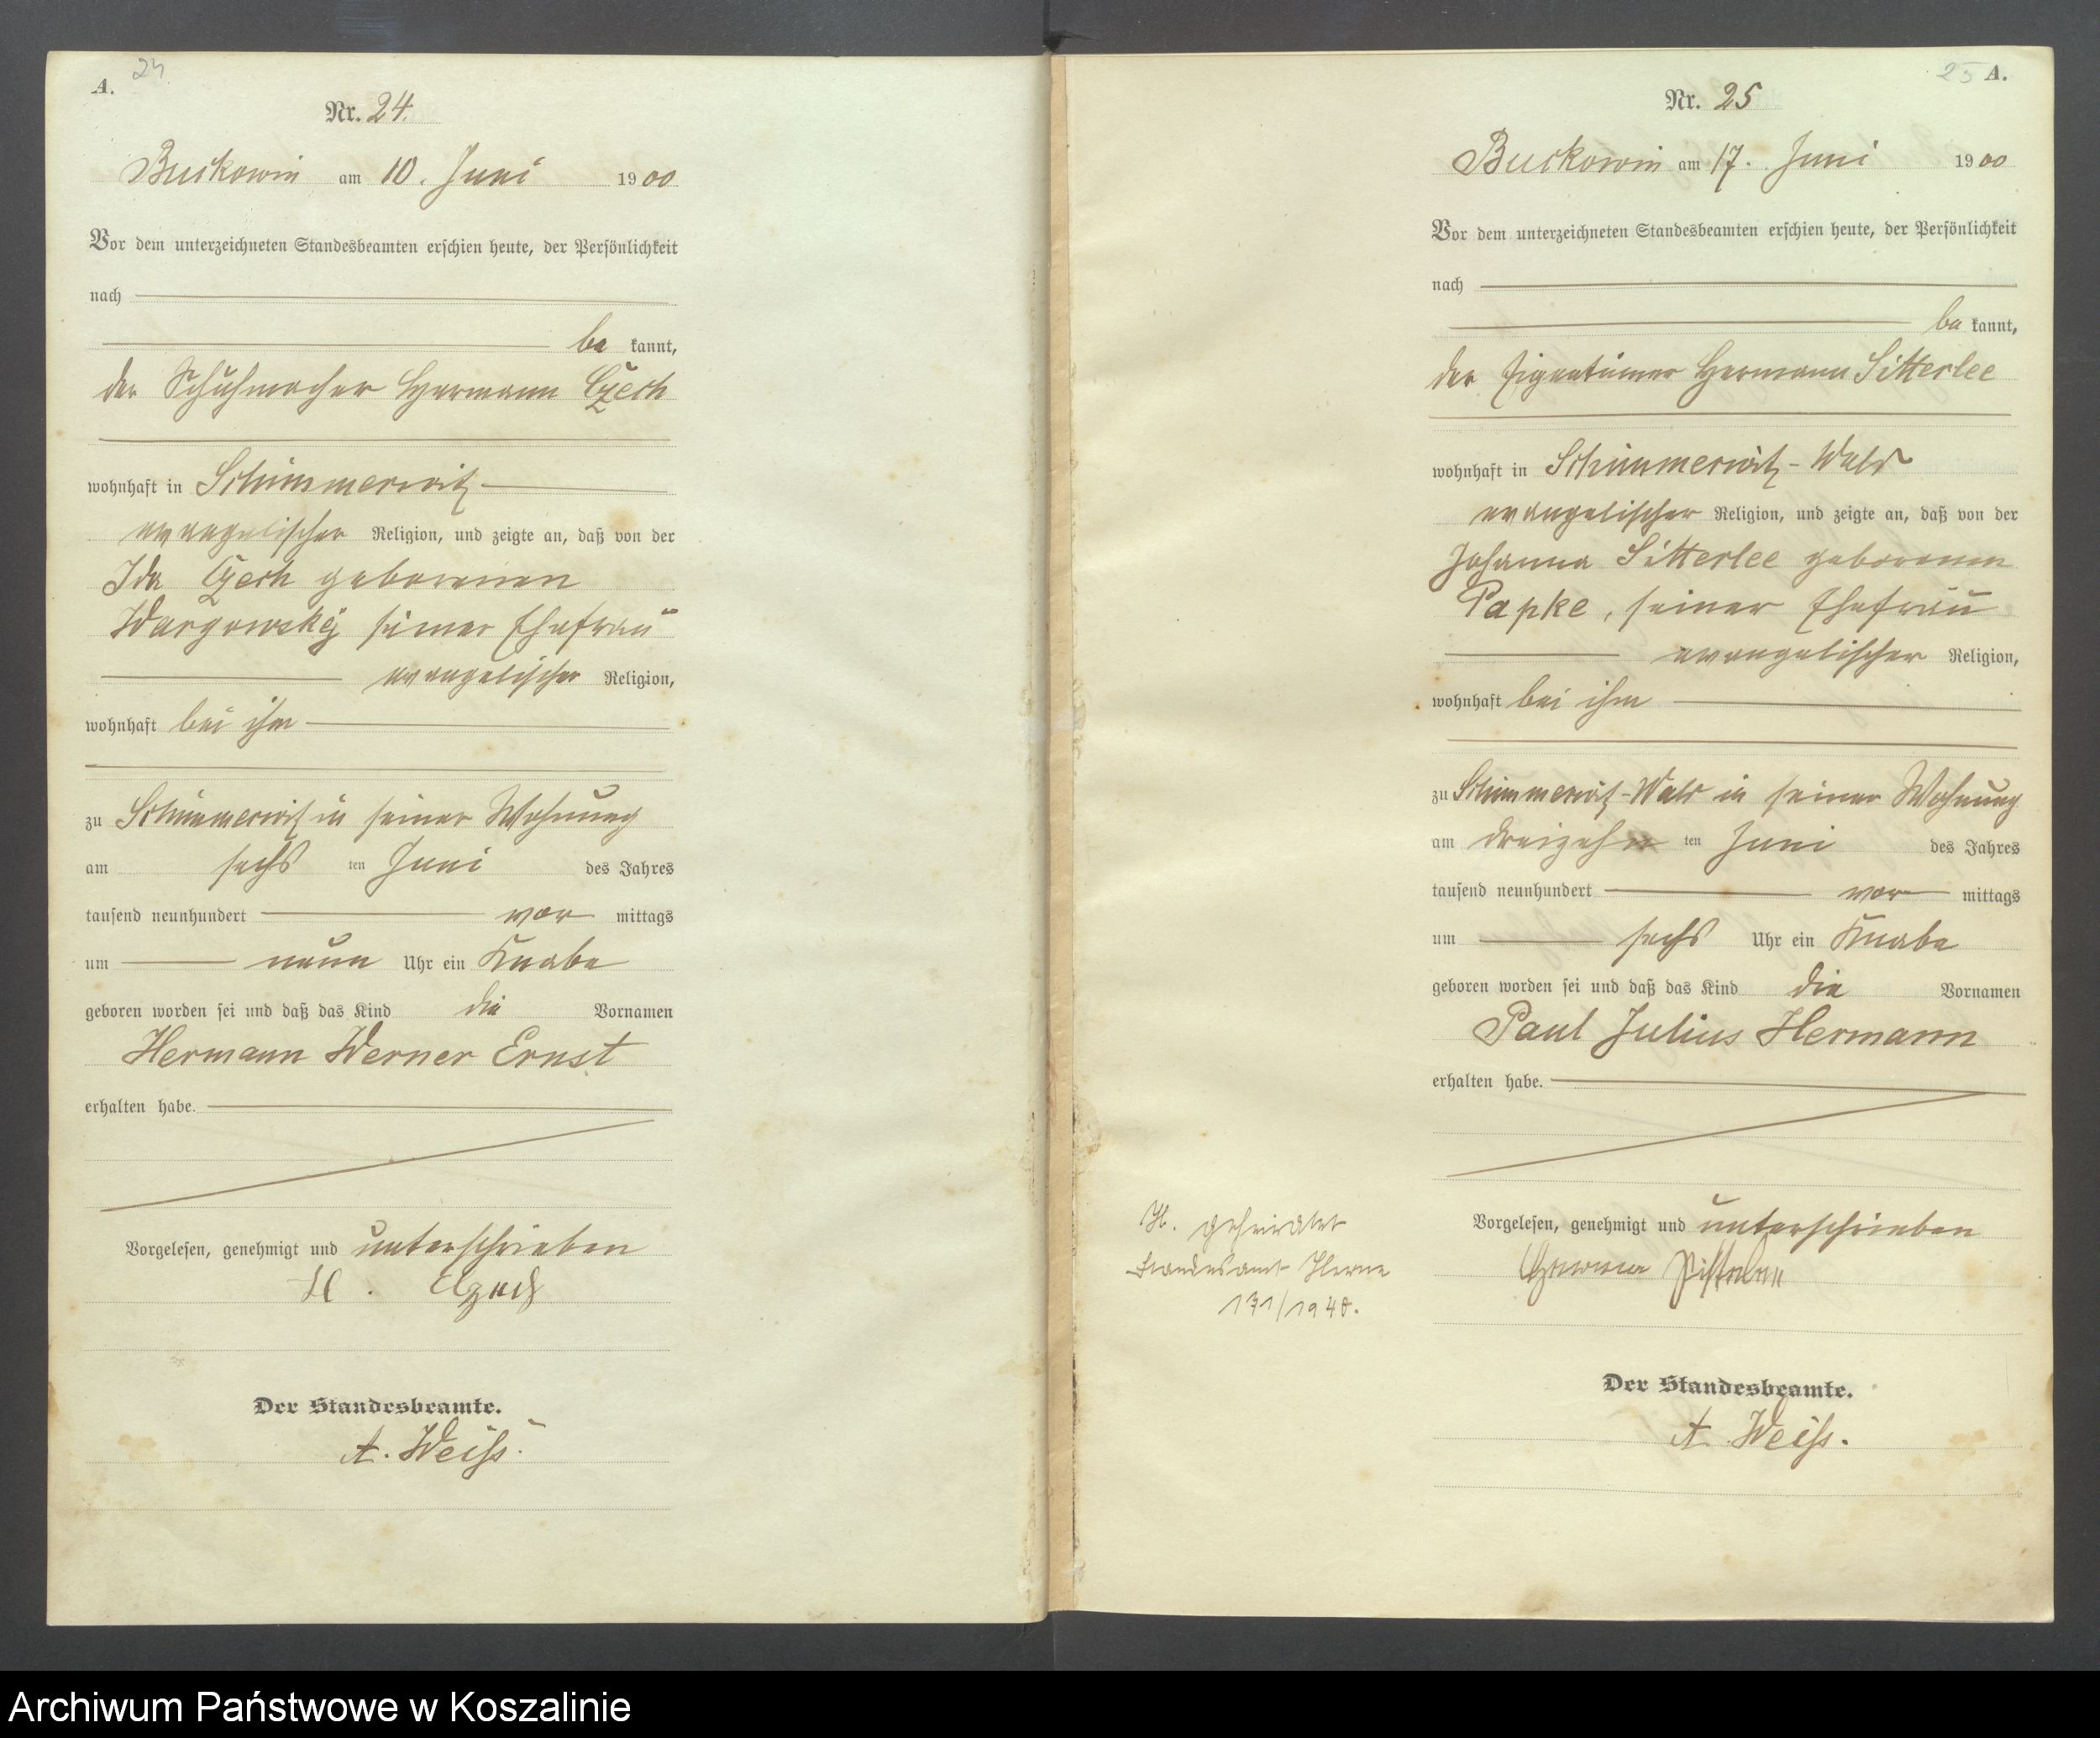 A.
24
Nr. 24.
Buckowin am 10. Juni 1900
Vor dem unterzeichneten Standesbeamten erschien heute, der Persönlichkeit
nach
be kannt,
der Schuhmacher Hermann Czech
wohnhaft in Schimmerwitz
evangelischer Religion, und zeigte an, daß von der
Ida Czech geborenen
seiner Ehefrau
evangelischer Religion,
wohnhaft bei ihm
zu Schimmerwitz in seiner Wohnung
am sechs ten Juni des Jahres
tausend neunhundert vor mittags
um neun Uhr ein Knabe
geboren worden sei und daß das Kind die Vornamen
Hermann Werner Ernst
erhalten habe.
Vorgelesen, genehmigt und unterschrieben
H. Czech
Der Standesbeamte.
A. Weiß.
25 A.
Nr. 25
Buckowin am 17. Juni 1900
Vor dem unterzeichneten Standesbeamten erschien heute, der Persönlichkeit
nach
be kannt,
der Eigentümer Hermann Sitterlee
wohnhaft in Schimmerwitz-Wald
evangelischer Religion, und zeigte an, daß von der
Johanna Sitterlee geborenen
Papke, seiner Ehefrau
evangelischer Religion,
wohnhaft bei ihm
zu Schimmerwitz-Wald in seiner Wohnung
am dreizehn ten Juni des Jahres
tausend neunhundert vor mittags
um sechs Uhr ein Knabe
geboren worden sei und daß das Kind die Vornamen
Paul Julius Hermann
erhalten habe.
Vorgelesen, genehmigt und unterschrieben
Der Standesbeamte.
A. Weiß.
geheiratet
Standesamt Herne
171/1940.
Archiwum Państwowe w Koszalinie